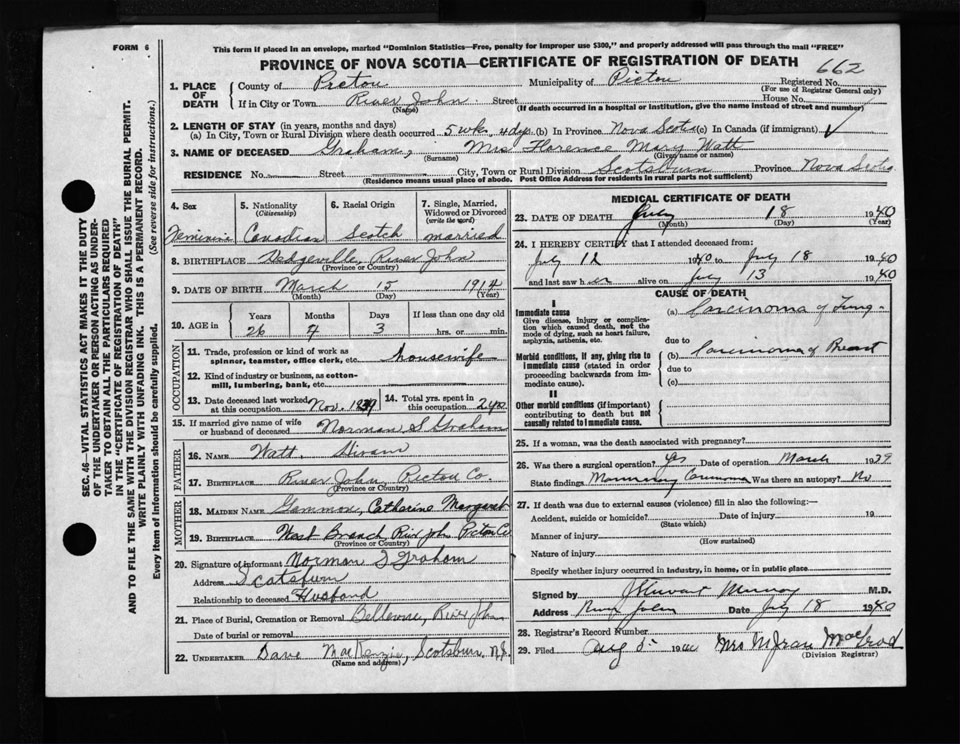 FORM 6
This form if placed in an envelope, marked "Dominion Statistics—Free, penalty for improper use $300," and properly addressed will pass through the mail "FREE"
PROVINCE OF NOVA SCOTIA—CERTIFICATE OF REGISTRATION OF DEATH 662
1. PLACE OF DEATH County of Pictou Municipality of Pictou Registered No.
(For use of Registrar General only)
If in City or Town River John Street House No.
(Name) (If death occurred in a hospital or institution, give the name instead of street and number)
2. LENGTH OF STAY (in years, months and days)
(a) In City, Town or Rural Division where death occurred 5 wks, 4 dys. (b) In Province Nova Scotia (c) In Canada (if immigrant)
3. NAME OF DECEASED Graham, Mrs Florence Mary Watt
(Surname) (Given name or names)
RESIDENCE No. Street City, Town or Rural Division Scotsburn Province Nova Scotia
(Residence means usual place of abode. Post Office Address for residents in rural parts not sufficient)
4. Sex 5. Nationality (Citizenship) 6. Racial Origin 7. Single, Married, Widowed or Divorced (write the word)
Feminine Canadian Scotch married
8. BIRTHPLACE Hedgeville, River John
(Province or Country)
9. DATE OF BIRTH March 15 1914
(Month) (Day) (Year)
10. AGE in Years Months Days If less than one day old
26 4 3 hrs. or min.
OCCUPATION
11. Trade, profession or kind of work as spinner, teamster, office clerk, etc. housewife
12. Kind of industry or business, as cotton-mill, lumbering, bank, etc.
13. Date deceased last worked at this occupation Nov. 1939 14. Total yrs. spent in this occupation
15. If married give name of wife or husband of deceased Norman S Graham
FATHER
16. Name Watt, Hiram
17. Birthplace River John, Pictou Co.
(Province or Country)
MOTHER
18. Maiden Name Gammon, Catharine Margaret
19. Birthplace West Branch, River John Pictou Co
(Province or Country)
20. Signature of informant Norman S Graham
Address Scotsburn
Relationship to deceased Husband
21. Place of Burial, Cremation or Removal Bellevue, River John
Date of burial or removal
22. UNDERTAKER Dave MacKenzie, Scotsburn. N.S.
(Name and address)
MEDICAL CERTIFICATE OF DEATH
23. DATE OF DEATH July 18 1940
(Month) (Day) (Year)
24. I HEREBY CERTIFY that I attended deceased from:
July 12 1940 to July 18 1940
and last saw her alive on July 13 1940
CAUSE OF DEATH
I
Immediate cause
Give disease, injury or complication which caused death, not the mode of dying, such as heart failure, asphyxia, asthenia, etc.
(a) Carcinoma of Lung
due to
Morbid conditions, if any, giving rise to immediate cause (stated in order proceeding backwards from immediate cause).
(b) Carcinoma of Breast
due to
(c)
II
Other morbid conditions (if important) contributing to death but not causally related to immediate cause.
25. If a woman, was the death associated with pregnancy?
26. Was there a surgical operation? Yes Date of operation March 1939
State findings Mammary Carcinoma Was there an autopsy? No
27. If death was due to external causes (violence) fill in also the following:—
Accident, suicide or homicide? Date of injury 19
(State which)
Manner of injury
(How sustained)
Nature of injury
Specify whether injury occurred in industry, in home, or in public place
Signed by J Stuart Murray M.D.
Address River John Date July 18 1940
28. Registrar's Record Number
29. Filed Aug 5 1940 Mrs MacLeod
(Division Registrar)
SEC. 46—VITAL STATISTICS ACT MAKES IT THE DUTY
OF THE UNDERTAKER OR PERSON ACTING AS UNDERTAKER TO OBTAIN ALL THE PARTICULARS REQUIRED
IN THE "CERTIFICATE OF REGISTRATION OF DEATH"
AND TO FILE THE SAME WITH THE DIVISION REGISTRAR WHO SHALL ISSUE THE BURIAL PERMIT.
WRITE PLAINLY WITH UNFADING INK. THIS IS A PERMANENT RECORD.
Every item of information should be carefully supplied. (See reverse side for instructions.)